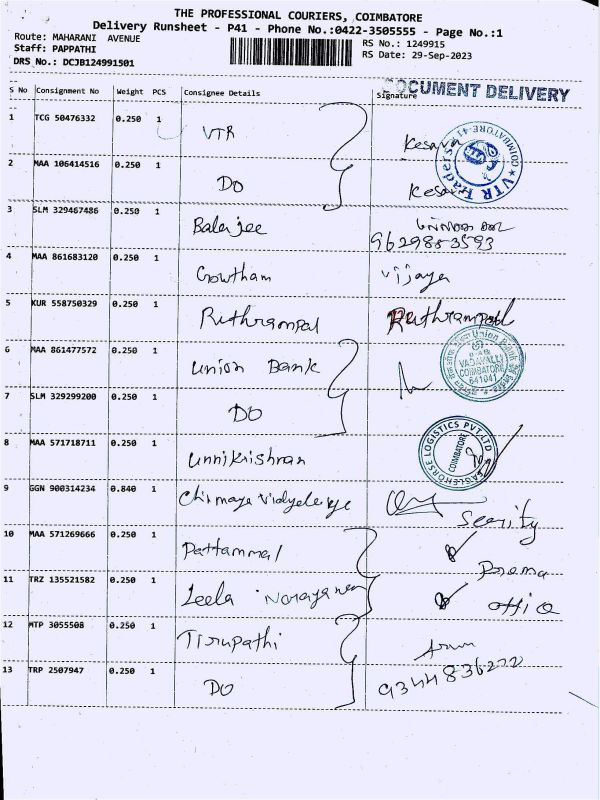 THE PROFESSIONAL COURIERS, COIMBATORE
Delivery Runsheet - P41 - Phone No.:0422-3505555 - Page No.:1
Route: MAHARANI AVENUE
RS No.: 1249915
Staff: PAPPATHI
RS Date: 29-Sep-2023
DRS No.: DCJB124991501
DOCUMENT DELIVERY
S No Consignment No Weight PCS Consignee Details Signature
1 TCG 50476332 0.250 1 VTR Kesava
VTR Traders COIMBATORE-41
2 MAA 106414516 0.250 1 DO Kesava
3 SLM 329467486 0.250 1 Balajee
9629853593
4 MAA 861683120 0.250 1 Gowtham Vijaya
5 KUR 558750329 0.250 1 Ruthrampal Ruthrampal
6 MAA 861477572 0.250 1 Union Bank
Union Bank of India
VADAVALLI
COIMBATORE
641041
7 SLM 329299200 0.250 1 DO
8 MAA 571718711 0.250 1 Unnikrishnan
EAGLEHORSE LOGISTICS PVT.LTD
COIMBATORE
9 GGN 900314234 0.840 1 Chinmaya Vidyalaya
Secrity
10 MAA 571269666 0.250 1 Pattammal
Prema
11 TRZ 135521582 0.250 1 Leela Narayanan
office
12 MTP 3055508 0.250 1 Tirupathi Arun
13 TRP 2507947 0.250 1 DO 9344836222